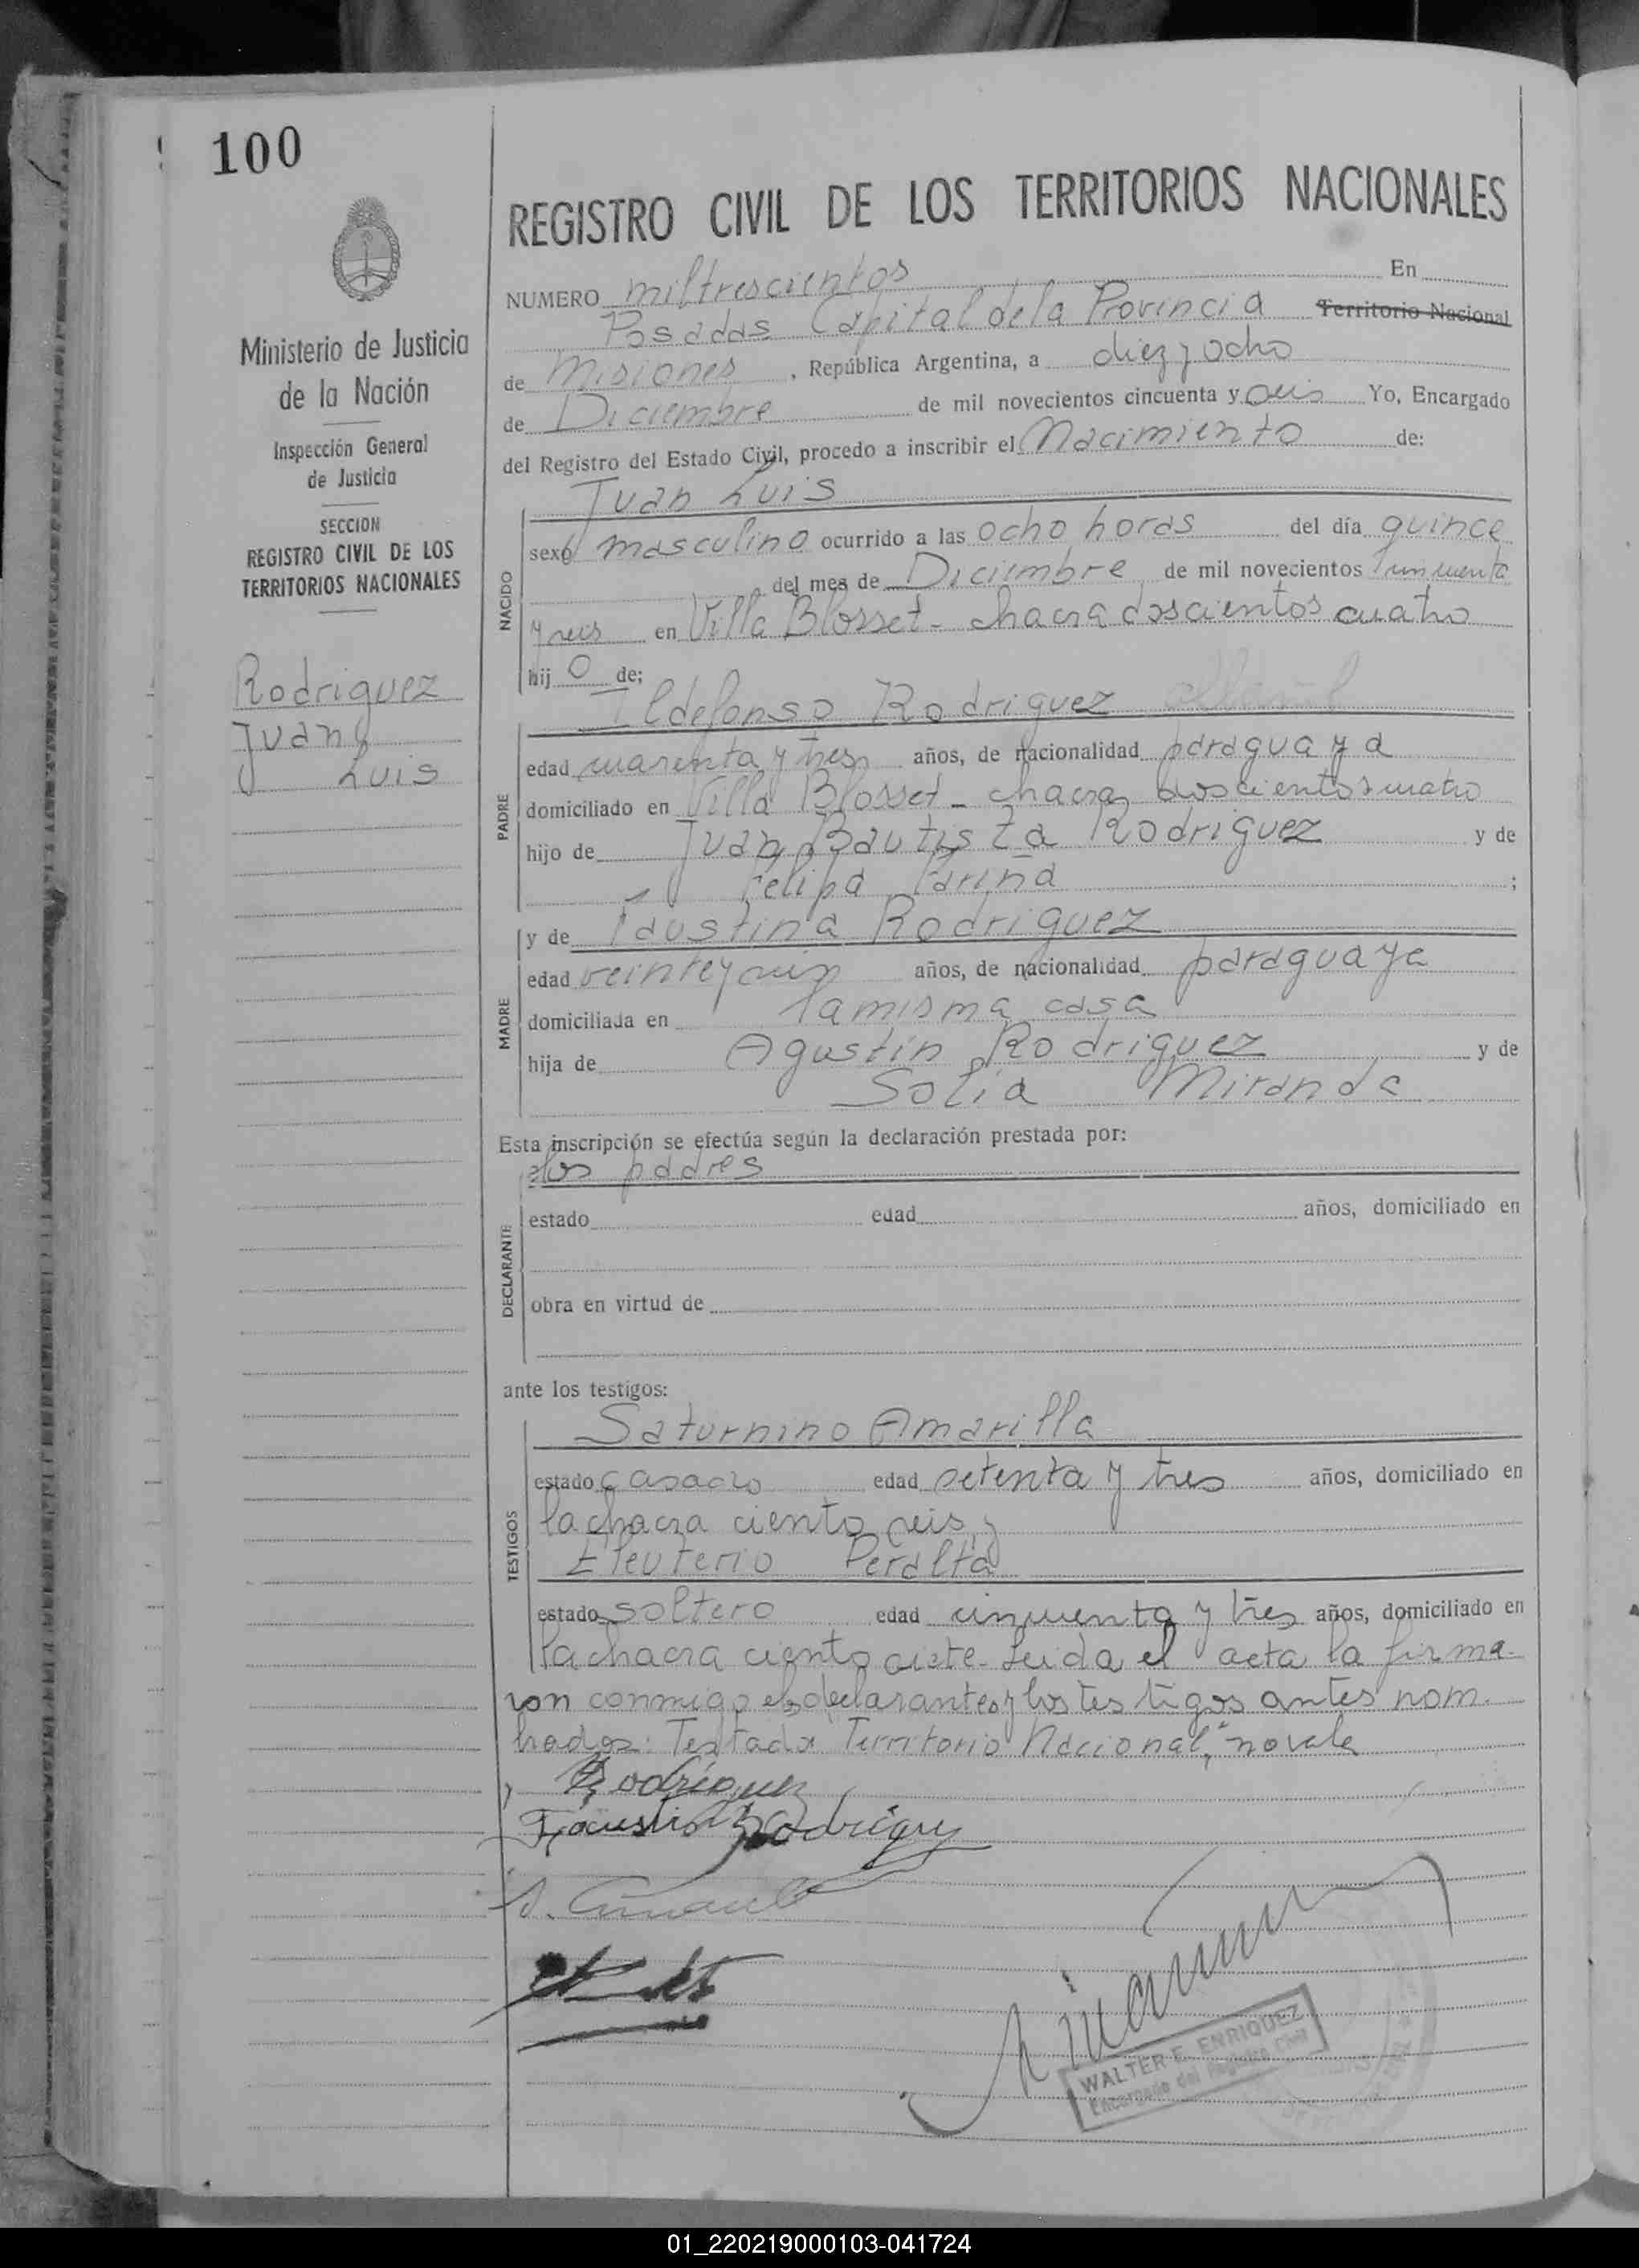 100
REGISTRO CIVIL DE LOS TERRITORIOS NACIONALES
Ministerio de Justicia
de la Nación
Inspección General
de Justicia
SECCION
REGISTRO CIVIL DE LOS
TERRITORIOS NACIONALES
Rodriguez
Juan
Luis
NUMERO miltrescientos En
Posadas Capital dela Provincia Territorio Nacional
de Misiones, República Argentina, a diez y ocho
de Diciembre de mil novecientos cincuenta y seis Yo, Encargado
del Registro del Estado Civil, procedo a inscribir el Nacimiento de:
Juan Luis
NACIDO
sexo masculino ocurrido a las ocho horas del día quince
del mes de Diciembre de mil novecientos cincuenta
y seis en Villa Blosset - chacra doscientos cuatro
hijo de;
Ildefonso Rodriguez
PADRE
edad cuarenta y tres años, de nacionalidad paraguaya
domiciliado en Villa Blosset - chacra doscientos cuatro
hijo de Juan Bautista Rodriguez y de
Felipa Fariña ;
MADRE
y de Faustina Rodriguez
edad años, de nacionalidad paraguaya
domiciliada en lamisma casa
hija de Agustin Rodriguez y de
Miranda
Esta inscripción se efectúa según la declaración prestada por:
los padres
DECLARANTE
estado edad años, domiciliado en
obra en virtud de
ante los testigos:
TESTIGOS
Saturnino Amarilla
estado casado edad setenta y tres años, domiciliado en
la chacra ciento seis y
Eleuterio Peralta
estado soltero edad cincuenta y tres años, domiciliado en
la chacra ciento siete - Leida el acta la firma-
ron conmigo declarantes y los testigos antes nom-
brados: Testado "Territorio Nacional," no vale
Rodriguez
Faustina Rodriguez
WALTER E. ENRIQUEZ
Encargado del Registro Civil
01_220219000103-041724